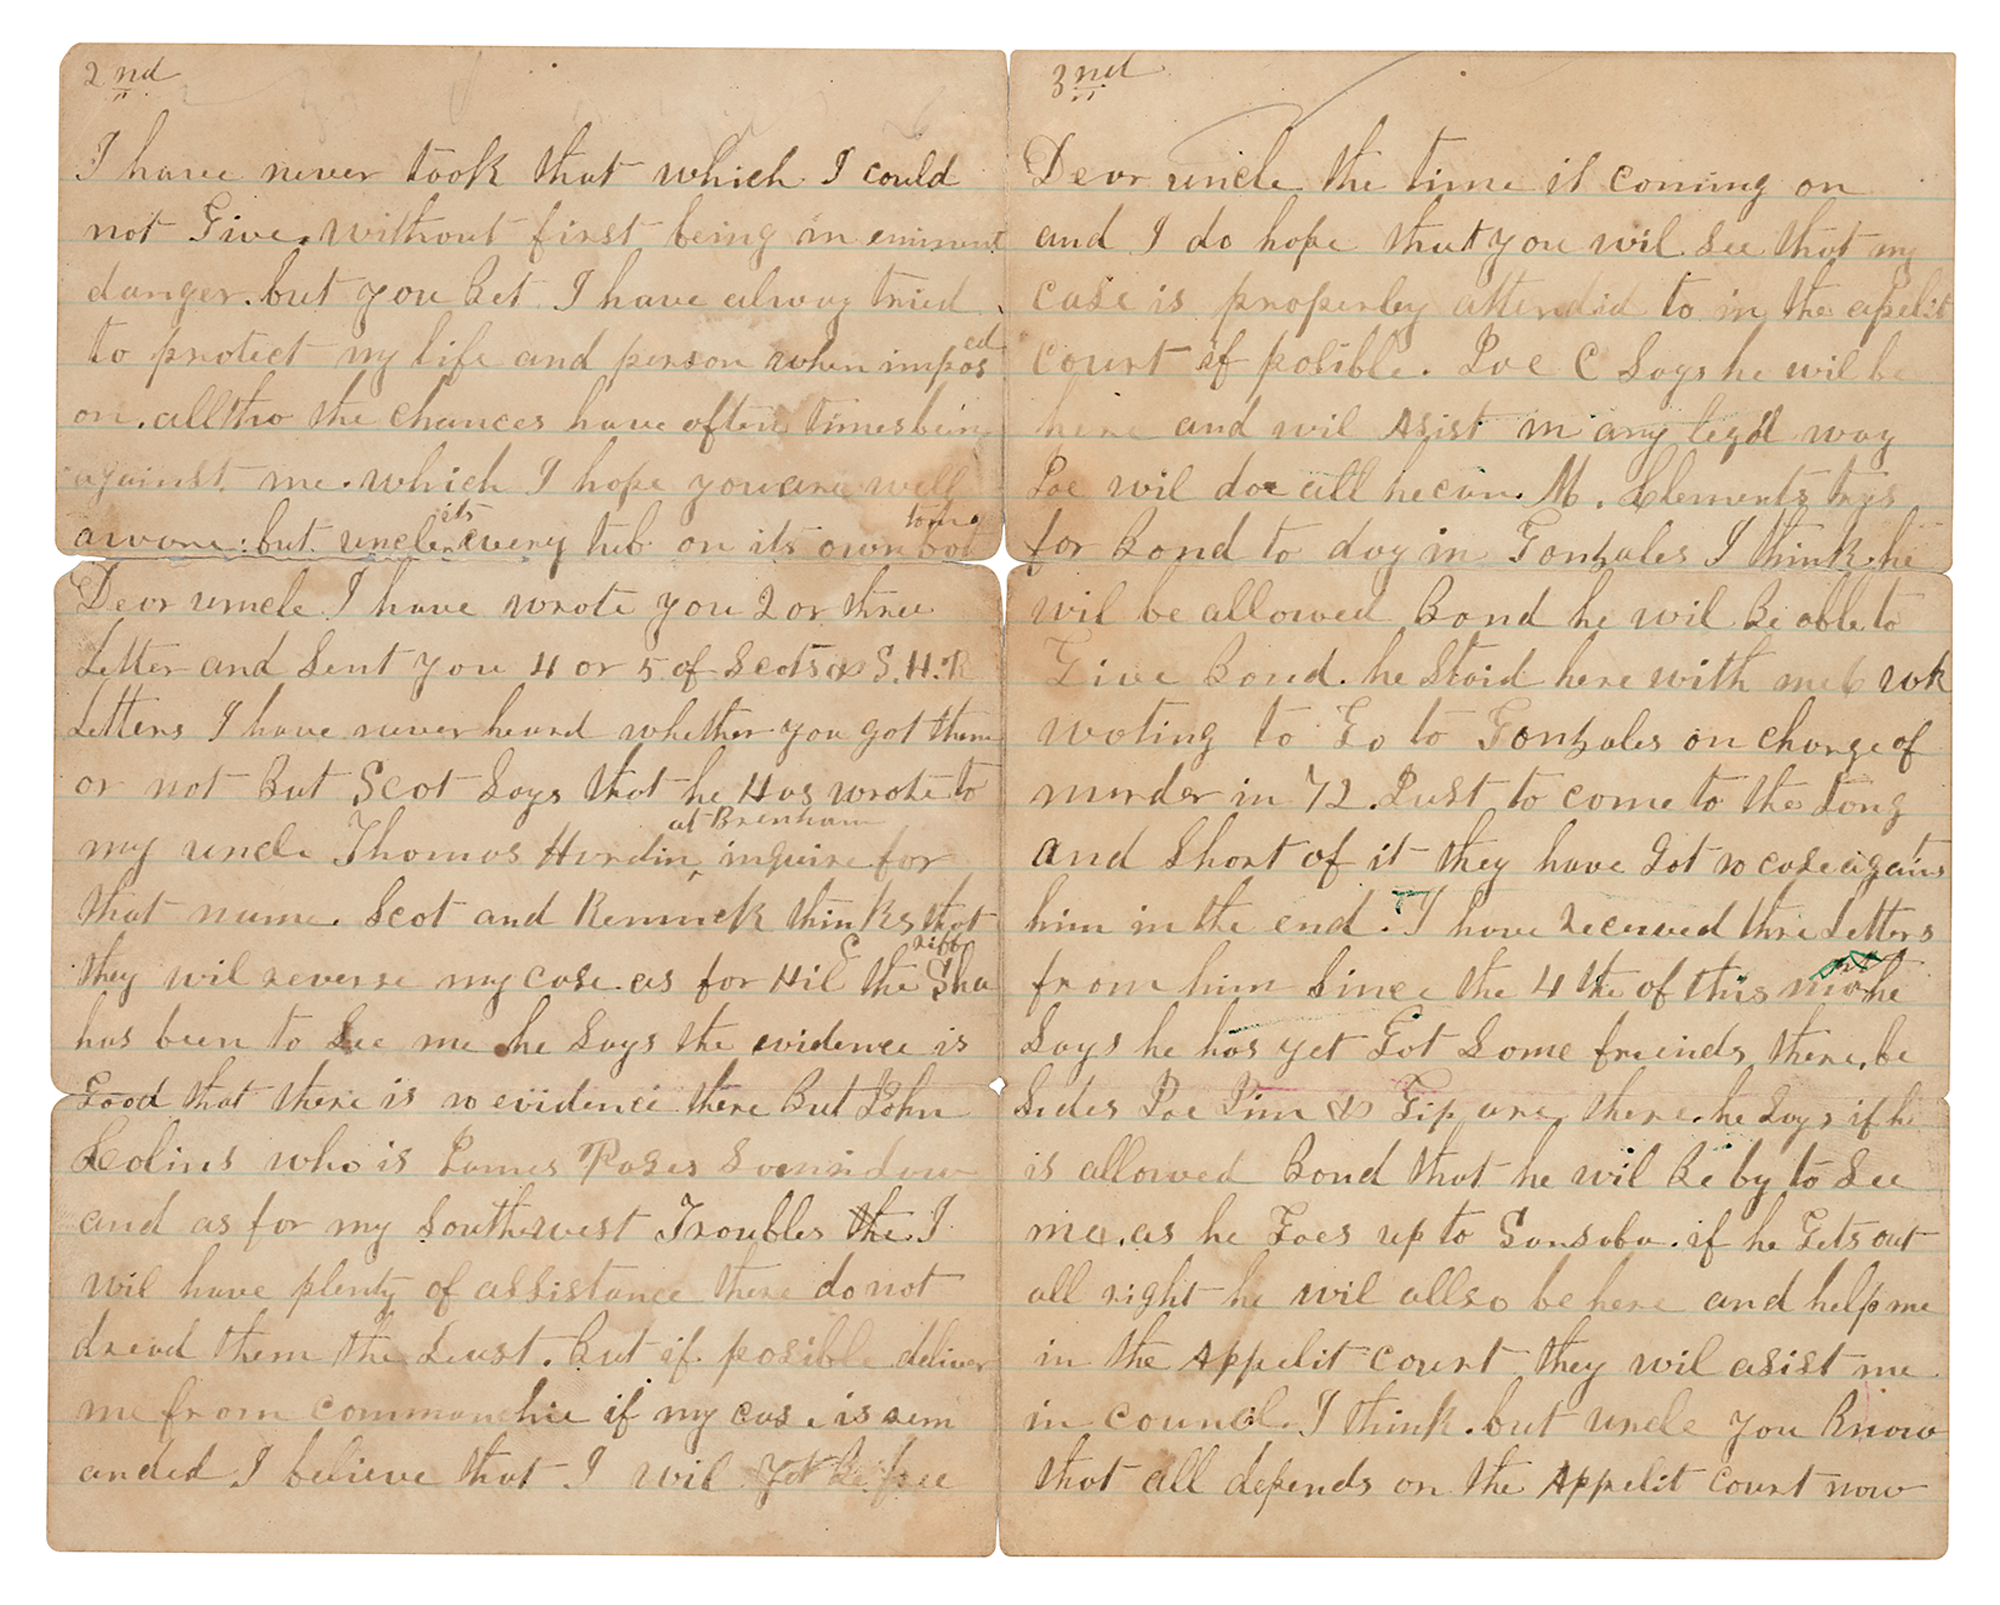 2 nd
I have never took that which I could
not Give, without first being in eminent
danger. but you Bet I have alway tried
to protect my life and person when imposed
on. alltho the chances have often times bein
against me. which I hope you are well
awore: but uncle, its every tub on its own botom
Dear uncle I have wrote you 2 or three
Letter and Sent you 4 or 5 of Scots & S.H.R
Letters I have never heard whether you got them
or not But Scot Says that he Has wrote to
my uncle Thomas Hardin, at Brenham inquire for
that name. Scot and Rennick thinks that
they wil reverse my case. as for Hill the Shariff
has been to See me he Says the evidence is
Good that there is no evidence there But John
Colins who is James Roses Soninlaw
and as for my Southwest Troubles the I
wil have plenty of assistance there do not
dread them the Least. But if posible deliver
me from commanchie if my case is rem
anded I believe that I wil yet Be free
3 nd
Dear uncle the time is coming on
and I do hope that you wil See that my
case is properley attendid to in the apelit
court if posible. Joe C Says he wil be
here and wil Asist in any legal way
Joe wil doe all he can. M. Clements trys
for Bond to day in Gonzales I think he
wil be allowed Bond he wil Be able to
Give Bond. he Staid here with me 6 wk
wating to Go to Gonzales on charge of
murder in 72. Just to come to the Long
and Short of it they have Got no case against
him in the end. I have received thre Letters
from him Since the 4 the of this month he
Says he has yet Got Some freinds there, be
Sides Joe Jim & Gip are there. he Says if he
is allowed Bond that he wil Be by to See
me. as he Goes up to Sansaba. if he Gets out
all right he wil allso be here and help me
in the Appelit court they wil asist me
in council. I think. but uncle you Know
that all depends on the Appelit court now